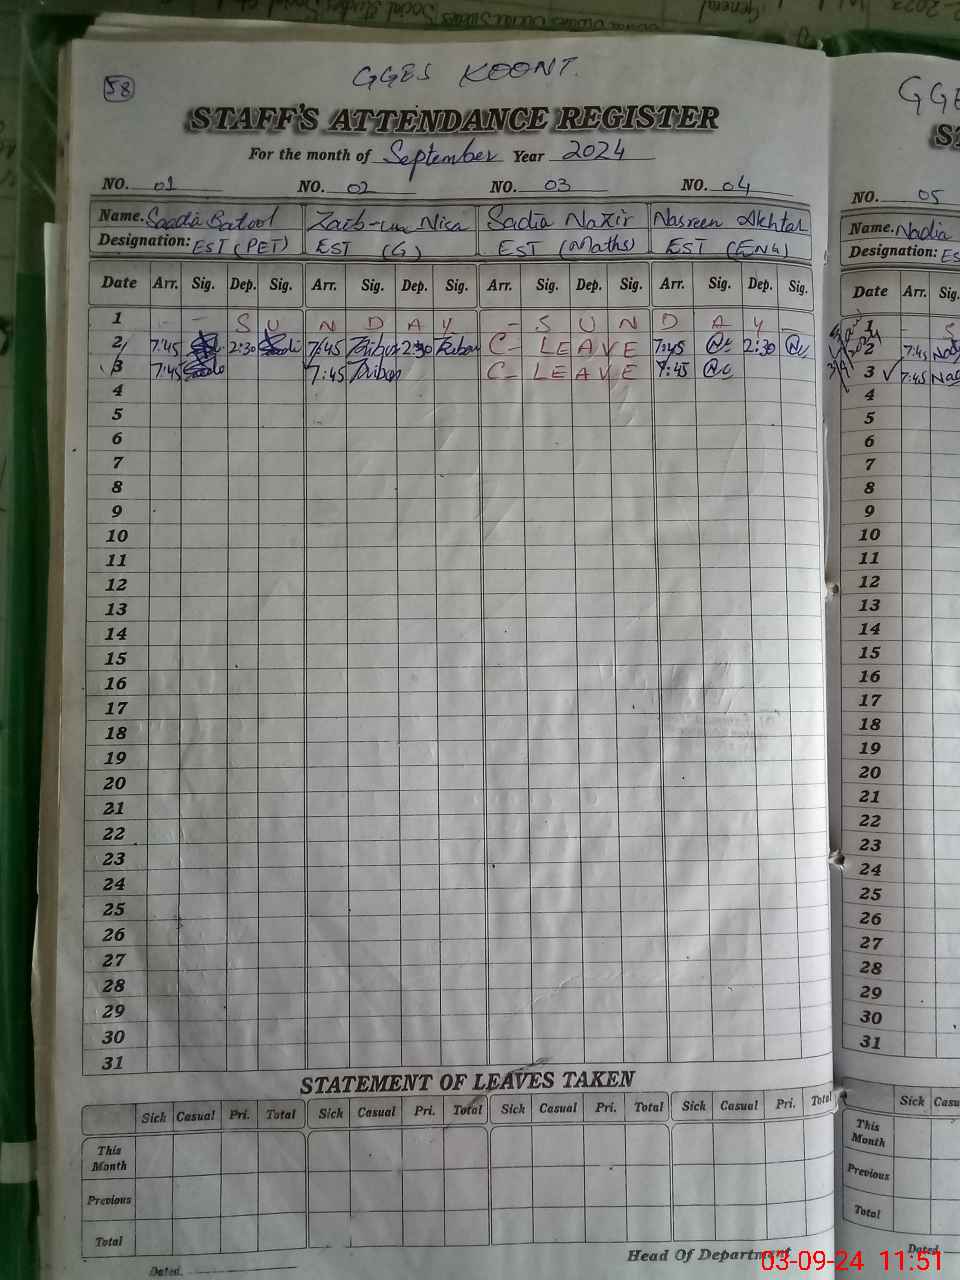 58
GGES KOONT.
STAFF'S ATTENDANCE REGISTER
For the month of September Year 2024
NO. 01 NO. 02 NO. 03 NO. 04
Name. Saadia Batool Zaib-un Nisa Sadia Nazir Nasreen Akhtar
Designation: EST (PET) EST (G) EST (Maths) EST (ENG)
Date Arr. Sig. Dep. Sig. Arr. Sig. Dep. Sig. Arr. Sig. Dep. Sig. Arr. Sig. Dep. Sig.
1 - - S U N D A Y - S U N D A Y -
2 7:45 2:30 7:45 2:30 C- L E A V E 7:45 2:30
3 7:45 7:45 C- L E A V E 7:45
4
5
6
7
8
9
10
11
12
13
14
15
16
17
18
19
20
21
22
23
24
25
26
27
28
29
30
31
STATEMENT OF LEAVES TAKEN
Sick Casual Pri. Total Sick Casual Pri. Total Sick Casual Pri. Total Sick Casual Pri. Total
This Month
Previous
Total
Dated. Head Of Department
GGE
S
NO. 05
Name. Nadia
Designation: ES
Date Arr. Sig.
1 S
2 7:45
3 7:45
4
5
6
7
8
9
10
11
12
13
14
15
16
17
18
19
20
21
22
23
24
25
26
27
28
29
30
31
Sick Casu
This Month
Previous
Total
Dated.
03-09-24 11:51